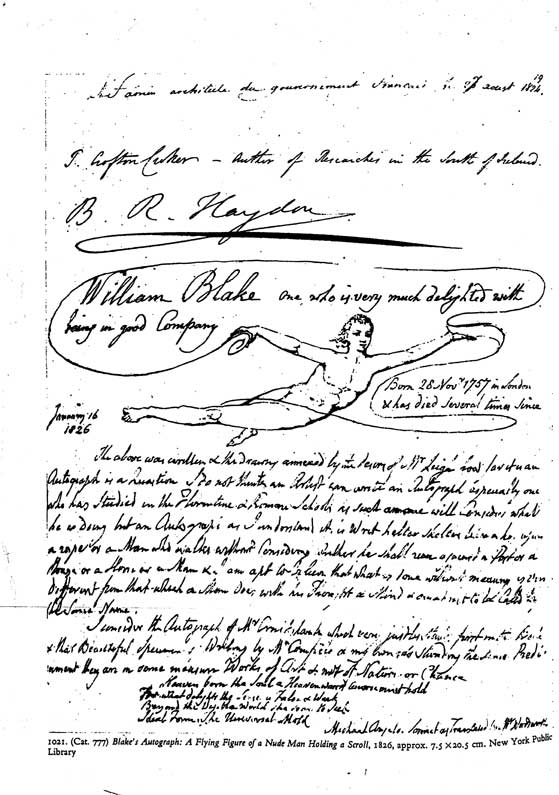 architecte du gouvernement français le 27 aoust 1824.
19
T. Crofton Croker – Author of Researches in the South of Ireland.
B. R. Haydon
William Blake one who is very much delighted with
being in good Company
Born 28 Novr 1757 in London
& has died several times since
January 16
1826
The above was written & the drawing annexed by the desire of Mr Leigh how far it is an
Autograph is a Question I do not think an Artist can write an Autograph especially one
who has Studied in the Florentine & Roman Schools as such an one will Consider what
he is doing but an Autograph as I understand it, is Writ helter skelter like a hog upon
a rope or a Man who walks without Considering whether he shall run against a Post or a
House or a Horse or a Man & I am apt to believe that what is done without meaning is very
different from that which a Man Does with his Thought & Mind & ought not to be Called by
the Same Name.
I consider the Autograph of Mr Cruikshank which very justly stands first in the Book
& that Beautiful Specimen of Writing by Mr Comfield & my own as standing the same Predi-
cament they are in some measure Works of Art & not of Nature or Chance
Heaven born the Soul a Heavenward Course must hold
For what delights the Sense is False & Weak
Beyond the Visible World she soars to Seek
Ideal Form, The Universal Mold
Michael Angelo. Sonnet as Translated by Mr Wordsworth
1021. (Cat. 777) Blake's Autograph: A Flying Figure of a Nude Man Holding a Scroll, 1826, approx. 7.5 × 20.5 cm. New York Public
Library